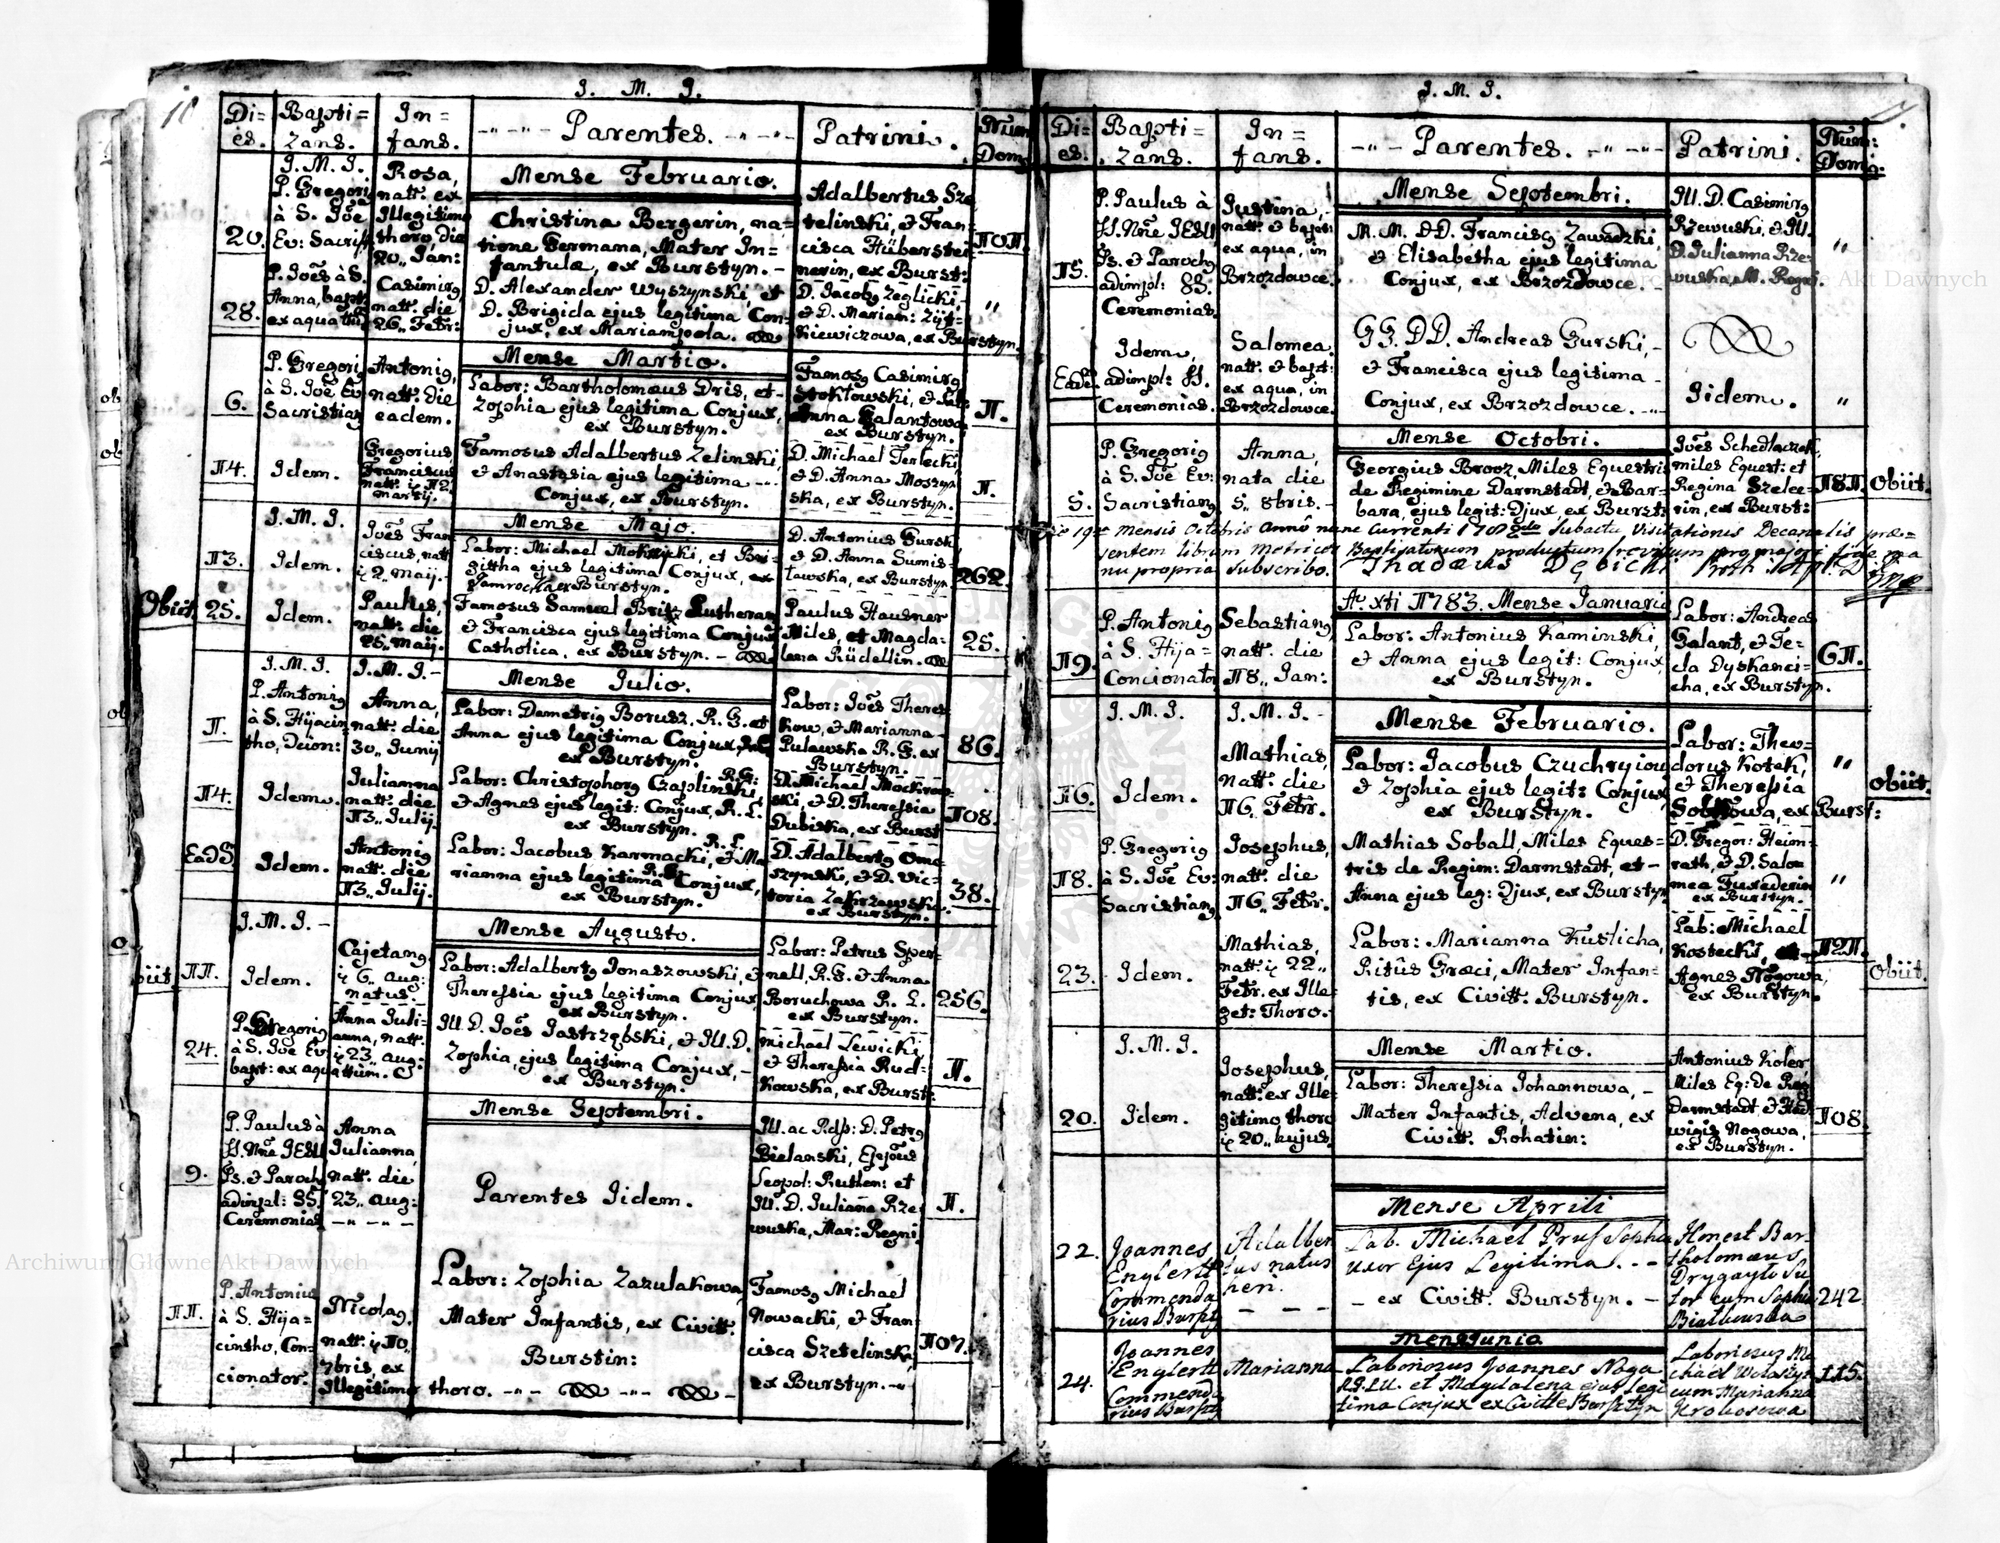 10
J. M. J.
Di=
es.
Bapti=
zans.
In=
fans.
Parentes.
Patrini.
Num
Dom
Mense Februario.
20.
J. M. J.
P. Gregori
à S. Joē
Ev: Sacrist
Rosa,
natt: ex
Illegitimo
thoro, die
20,, Jan:
Christina Bergerin, na=
tione Germana, Mater In=
fantulæ, ex Burstyn.
Adalbertus Sze
telinski, et Fran=
cisca Hüberstei
nerin, ex Burst:
101.
28.
P. Joēs à S.
Anna, bapt:
ex aqua tm
Casimirg
natt: die
26,, Febr:
D. Alexander Wyszynski, et
D. Brigida ejus legitima Con=
jux, ex Mariampola.
D. Jacobg Zeglicki,
et D. Mariam: Zyt=
kiewiczowa, ex Burstyn.
"
Mense Martio.
6.
P. Gregorig
à S. Joē Ev
Sacristiang
Antonig,
natt: die
eadem.
Labor: Bartholomæus Dris, et
Zophia ejus legitima Conjux,
ex Burstyn.
Famosg Casimirg
Stokłowski, et
Anna Galantowa
ex Burstyn.
11.
14.
Idem.
Gregorius
Franciscus
natt: 12
Martij.
Famosus Adalbertus Zelinski,
et Anastasia ejus legitima
Conjux, ex Burstyn.
D. Michael Terlecki,
et D. Anna Moszyn
ska, ex Burstyn.
11.
Mense Majo.
13.
J. M. J.
Idem.
Joēs Fran
ciscus, natt
2,, Maij.
Labor: Michael Mokrzycki, et Bri=
gittha ejus legitima Conjux, ex
Burstyn.
D. Antonius Gurski
et D. Anna Sumis=
ławska, ex Burstyn
262.
Obiit.
25.
Idem.
Paulus,
natt: die
25,, Maij.
Famosus Samuel Britz Lutheran
et Francisca ejus legitima Conjux
Catholica, ex Burstyn.
Paulus Hausner
Miles, et Magda=
lena Rüdellin.
25.
Mense Julio.
1.
J. M. J.
P. Antonig
à S. Hijacin
tho, Dcion:
J. M. J.
Anna,
natt: die
30,, Junij
Labor: Demetrig Borusz, R. G. et
Anna ejus legitima Conjux,
ex Burstyn.
Labor: Joēs Theres
kow, et Marianna
Pulawska R. G. ex
Burstyn.
86.
14.
Idem.
Julianna
natt: die
13,, Julij.
Labor: Christophorg Czaplinski R. G:
et Agnes ejus legit: Conjux, R. L.
ex Burstyn.
D. Michael Mockrow
ski, et D. Theressia
Dubiska, ex Burst
108.
Ead.
Idem.
Antonig
natt: die
13,, Julij.
Labor: Jacobus Karmacki, R. L. et Ma
rianna ejus legitima Conjux,
ex Burstyn.
D. Adalbertg Oma
szynski, et D. Vic=
toria Zakrzewska,
ex Burstyn.
38.
Mense Augusto.
11.
J. M. J.
Idem.
Cajetang
6,, aug:
natus.
Labor: Adalbertg Jonaszowski, et
Theressia ejus legitima Conjux,
ex Burstyn.
Labor: Petrus Sper=
nell, R. G. et Anna
Boruchowa R. L.
ex Burstyn.
256.
24.
P. Gregorig
à S. Joē Ev
bapt: ex aqua ttum.
Anna Juli=
anna, natt:
23,, aug:
Ill. D. Joēs Jastrzębski, et Ill. D.
Zophia, ejus legitima Conjux,
ex Burstyn.
Michael Lewicki,
et Theressia Rud=
kowska, ex Burst:
11.
Mense Septembri.
9.
P. Paulus à
SS. Nñe JESU
Ps. et Paroch
adimpl: SS.
Ceremonias
Anna
Julianna,
natt: die
23,, aug:
Parentes Iidem.
Ill. ac Rdss: D. Petrg
Bielanski, Eppus
Leopol: Ruthen: et
Ill. D. Juliana Rze
wuska, Mar: Regni.
11.
11.
P. Antonius
à S. Hija=
cintho, Con=
cionator.
Nicolag,
natt: 10
7bris, ex
Illegitimo
thoro.
Labor: Zophia Zazulakowa
Mater Infantis, ex Civitt:
Burstin:
Famosg Michael
Nowacki, et Fran
cisca Szetelinska,
ex Burstyn.
107.
J. M. J.
Di=
es.
Bapti=
zans.
In=
fans.
Parentes.
Patrini.
Num:
Domg:
Mense Septembri.
15.
P. Paulus à
SS. Nñe JESU
Ps. et Parochg
adimpl: SS.
Ceremonias
Justina,
natt: et bapt:
ex aqua, in
Brzozdowce.
M. M. DD. Franciscg Zawadzki,
et Elisabetha ejus legitima
Conjux, ex Brzozdowce.
Ill. D. Casimirg
Rzewuski, et Ill.
D. Julianna Rze=
wuska, M. Regni.
"
Eade
Idem,
adimpl: SS.
Ceremonias.
Salomea.
natt: et bapt:
ex aqua, in
Brzozdowce.
GG. DD. Andreas Gurski,
et Francisca ejus legitima
Conjux, ex Brzozdowce.
Iidem.
"
Mense Octobri.
5.
P. Gregorig
à S. Joē Ev:
Sacristiang
Anna,
nata die
5,, 8bris.
Georgius Brooz, Miles Equestris
de Regimine Darmstadt, et Bar=
bara, ejus legit: Djux, ex Burst:
Joēs Schedlaczek,
miles Equest: et
Regina Szelce=
rin, ex Burst:
181
Obiit.
19na mensis Octobris Anno nunc currenti 1782do subactu, Visitationis Decanalis præ=
sentem librum Metricor Baptizatorum productum revisum pro majori fide ma
nu propria subscribo. Thadæus Dębicki
A. xti 1783. Mense Januario
19.
P. Antonig
à S. Hija=
Concionator
Sebastiang
natt: die
18,, Jan:
Labor: Antonius Kaminski,
et Anna ejus legit: Conjux,
ex Burstyn.
Labor: Andreas
Galant, et Te=
cla Dyskanci=
cha, ex Burstyn.
61.
Mense Februario.
16.
J. M. J.
Idem.
J. M. J.
Mathias,
natt: die
16,, Febr.
Labor: Jacobus Czuchryiow
et Zophia ejus legit: Conjux,
ex Burstyn.
Labor: Theo=
dorus Kotek,
et Theresia
ex Burst:
"
Obiit.
18.
P. Gregorig
à S. Joē Ev:
Sacristiang
Josephus,
natt: die
16,, Febr.
Mathias Soball, Miles Eques=
tris de Regim: Darmstadt, et
Anna ejus leg: Djux, ex Burstyn
D. Gregor: Heim=
rath, et D. Salom
mea Fuxaderin
ex Burstyn.
"
23.
Idem.
Mathias,
natt: 22,,
Febr. ex Ille
get: Thoro.
Labor: Marianna Kuslicha,
Ritûs Græci, Mater Infan=
tis, ex Civitt: Burstyn.
Lab: Michael
Kostecki,
Agnes Nogowa,
ex Burstyn.
121.
Obiit.
Mense Martio.
20.
J. M. J.
Idem.
Josephus,
natt: ex Ille
gitimo thoro
20,, hujus.
Labor: Theressia Johannowa,
Mater Infantis, Advena, ex
Civitt: Rohatin:
Antonius Koler,
Miles Eq: de Reg
Darmstadt, et Hed
wigis Nogowa,
ex Burstyn.
108
Mense Aprili
22.
Joannes
Englertt
Commenda
rius Bursty
Adalber
tus natus
heri.
Lab. Michael Prus Sophia
uxor Ejus Legitima.
ex Civitt: Burstyn.
Honest Bar=
tholomæus
Drygayło Su
tor cum Sophia
Białowska
242
Mens Junio
24.
Joannes
Englertt
Commenda
rius Bursty
Marianna
Laboriosus Joannes Noga
et Magdalena ejus Legi
tima Conjux ex Civitte Burstyn
Laboriosus Mi
chael
cum Marianna
Krokosowa
115.
Archiwum Główne Akt Dawnych